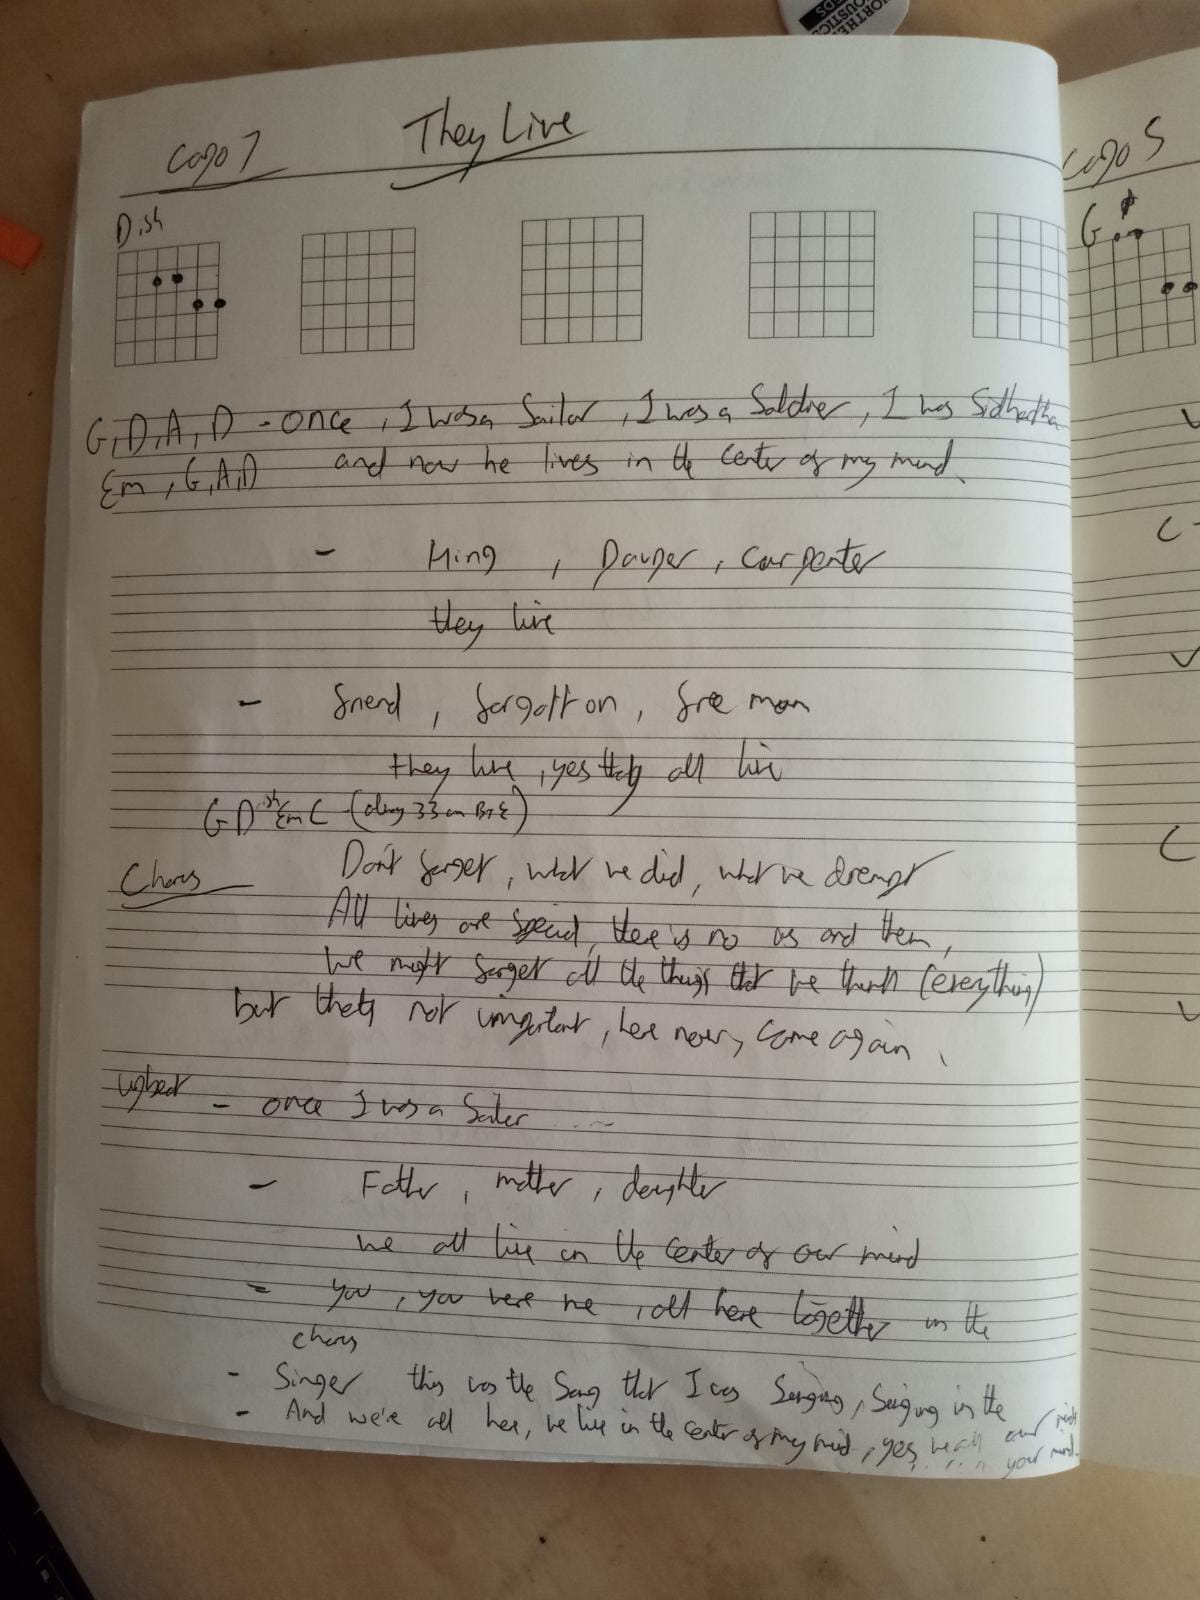 NORTHE
OUSTICS
EDS
They Live
Capo 7
Capo 5
Dish
G
G, D, A, D - once, I was a Sailor, I was a Soldier, I was Sidhartha
Em, G, A, D and now he lives in the center of my mind.
- King, Pauper, Carpenter
they live
- friend, forgotton, free man
they live, yes they all live
G D ish Em C (along 33 on B+E)
Chorus Don't forget, what we did, what we drempt
All lives are special, there's no us and them,
We might forget all the things that we think (everything)
but thats not important, here now, come again.
upbeat - once I was a Sailer ...
- Father, mother, daughter
we all live in the center of our mind
- you, you were me, all here together in the
chorus
- Singer this was the Song that I was Singing, Singing in the
- And we're all here, we live in the center of my mind, yes we all our minds
your mind.